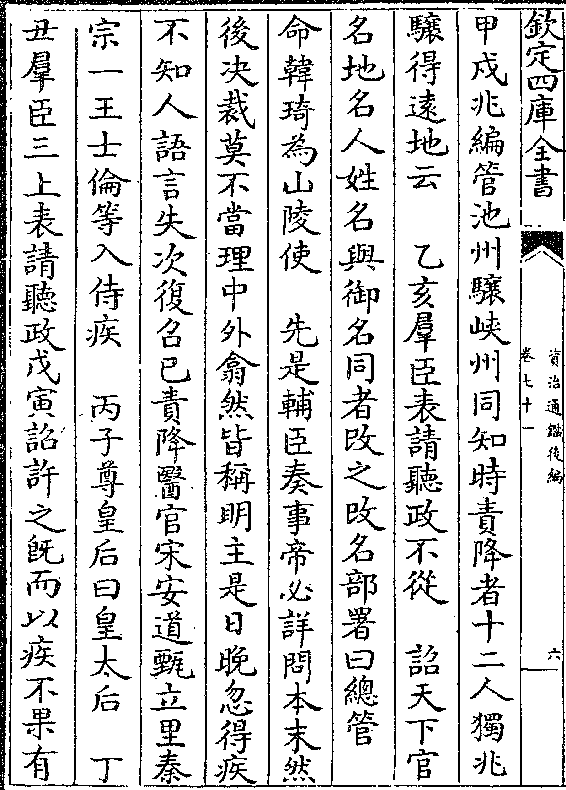 欽定四庫全書
資治通鑑後編
卷七十一
六
甲戌兆編管池州驤峽州同知時責降者十二人獨兆
驤得遠地云　乙亥羣臣表請聽政不從　詔天下官
名地名人姓名與御名同者改之改名部署曰總管
命韓琦為山陵使　先是輔臣奏事帝必詳問本末然
後決裁莫不當理中外翕然皆稱明主是日晚忽得疾
不知人語言失次復召已責降醫官宋安道甄立里秦
宗一王士倫等入侍疾　丙子尊皇后曰皇太后　丁
丑羣臣三上表請聽政戊寅詔許之既而以疾不果有